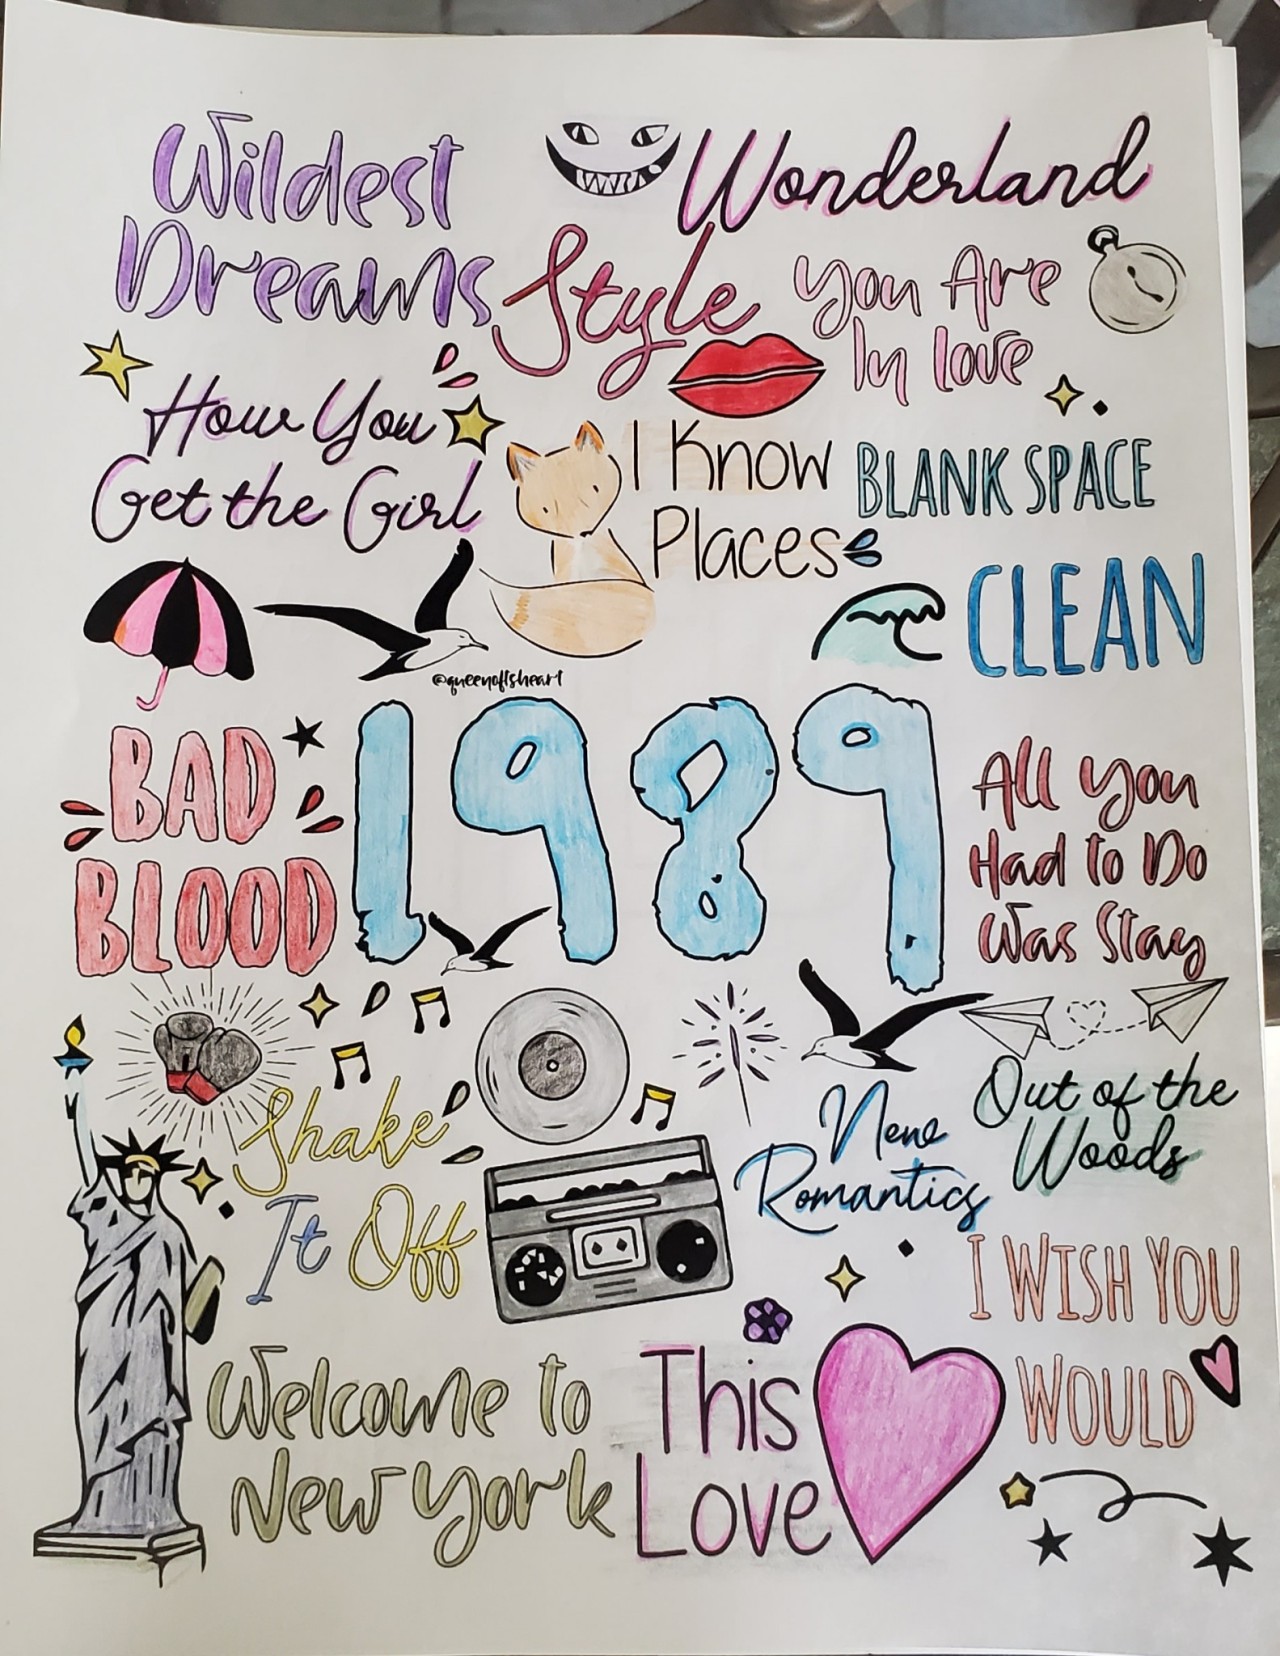 Wildest
Dreams
Wonderland
Style
You Are
In Love
How You
Get the Girl
I Know
Places
BLANK SPACE
CLEAN
@queenoftsheart
BAD
BLOOD
1989
All You
Had to Do
Was Stay
Shake
It Off
New
Romantics
Out of the
Woods
I WISH YOU
WOULD
Welcome to
New York
This
Love